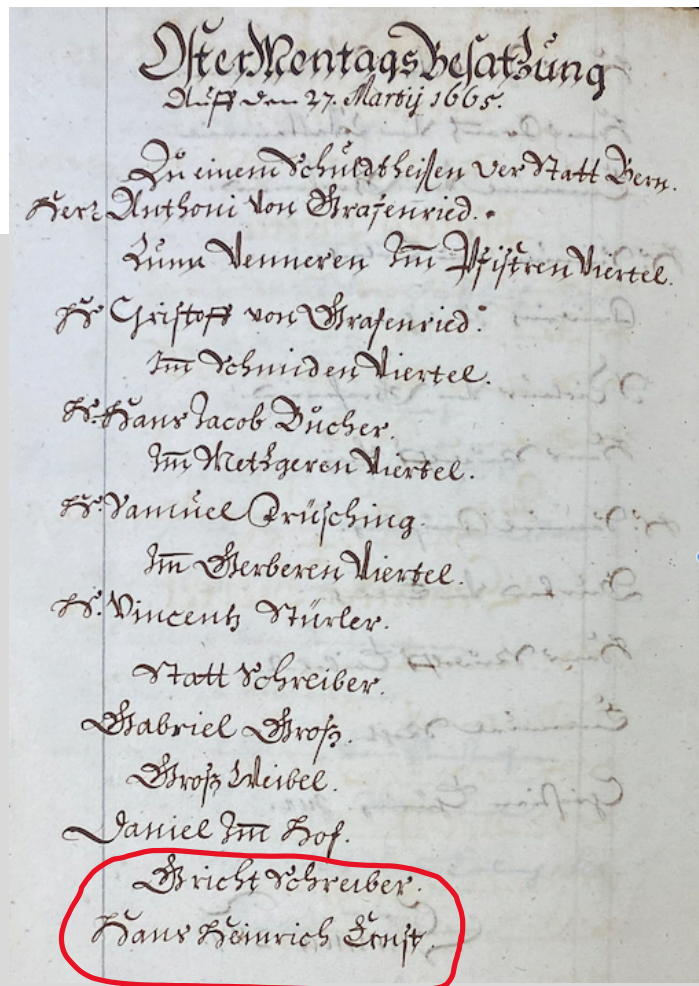 OsterMontags Besatzung
Auff den 27. Martij 1665.
Zu einem Schuldtheißen der Statt Bern.
Herr Anthoni von Grafenried.
Zum Venneren Im Pfistren Viertel.
Hr Christoff von Grafenried.
Im Schmiden Viertel.
Hr. Hans Jacob Bucher.
Im Metzgeren Viertel.
Hr. Samuel Früsching.
Im Gerberen Viertel.
Hr. Vincentz Stürler.
Statt Schreiber.
Gabriel Groß.
Groß Weibel.
Daniel Im Hof.
Gricht Schreiber.
Hans Heinrich Ernst.